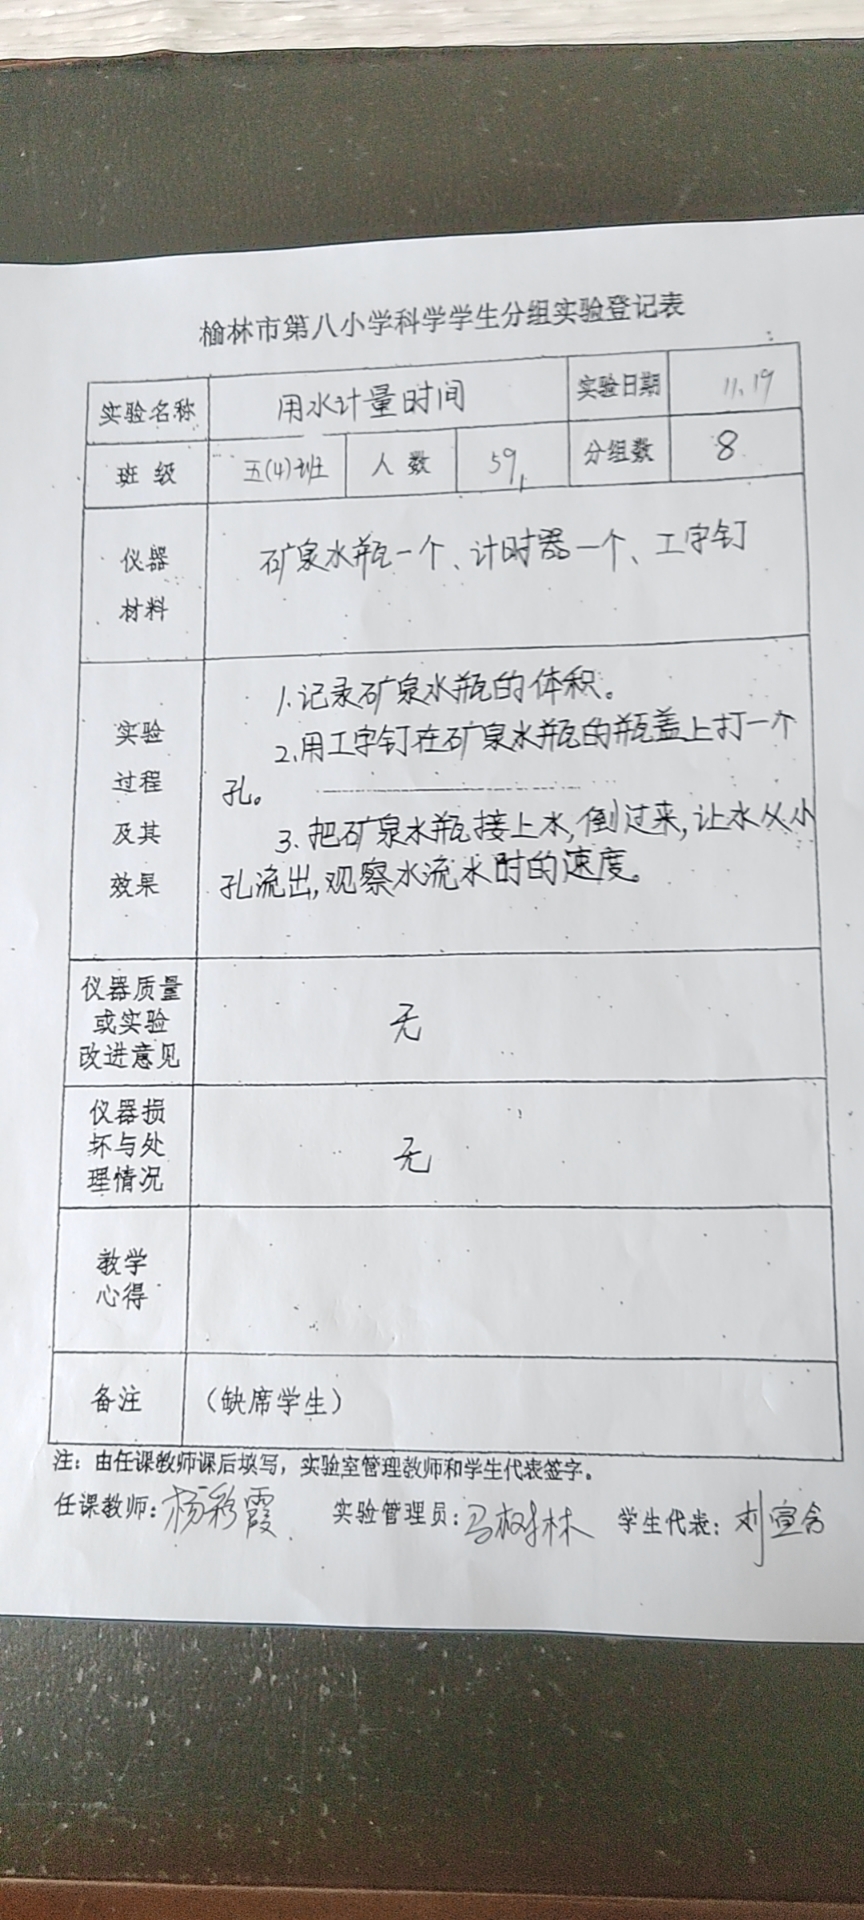 榆林市第八小学科学学生分组实验登记表
实验名称 用水计量时间 实验日期 11.19
班 级 五(4)班 人 数 59 分组数 8
仪器
材料
矿泉水瓶一个、计时器一个、工字钉
实验
过程
及其
效果
1.记录矿泉水瓶的体积。
2.用工字钉在矿泉水瓶的瓶盖上打一个
孔。
3.把矿泉水瓶接上水,倒过来,让水从小
孔流出,观察水流水时的速度。
仪器质量
或实验
改进意见
无
仪器损
坏与处
理情况
无
教学
心得
备注 (缺席学生)
注：由任课教师课后填写，实验室管理教师和学生代表签字。
任课教师：杨彩霞 实验管理员：马树林 学生代表：刘宣含